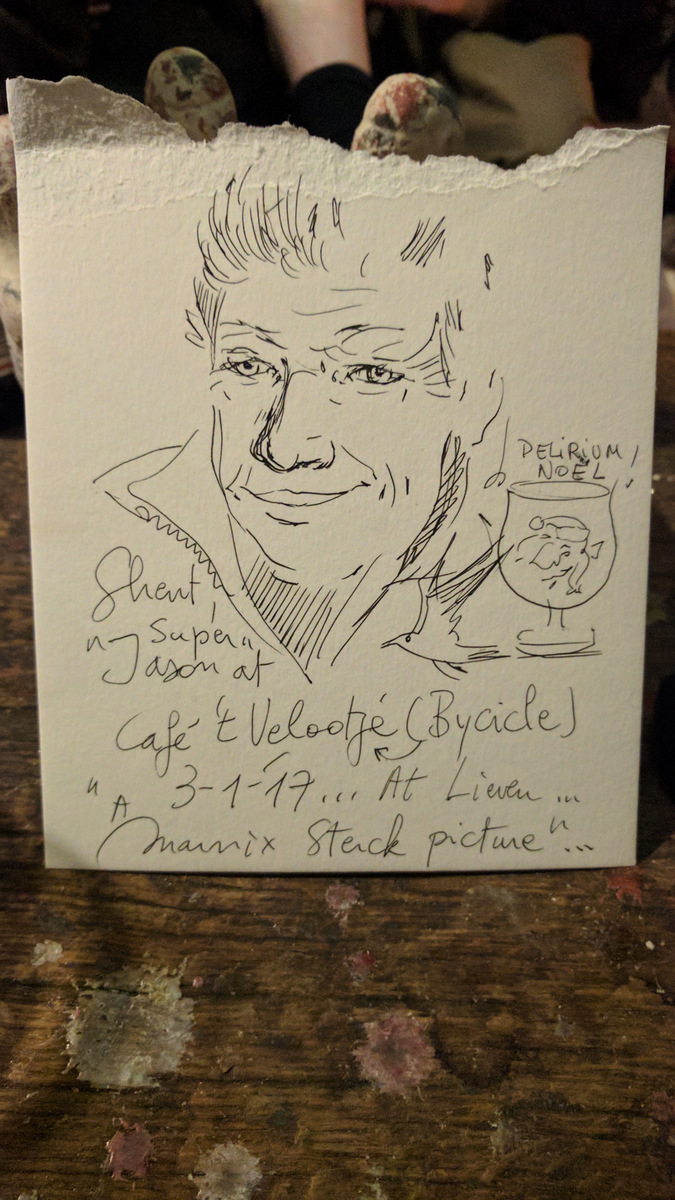 DELIRIUM
NOËL !
Ghent,
"Super"
Jason at
Café 't Velootjé (Bycicle)
3-1-'17... At Lieven...
"A
Marnix Sterck picture"...